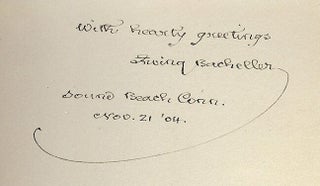 With hearty greetings
Irving Bacheller
Sound Beach Conn.
Nov. 21 '04.